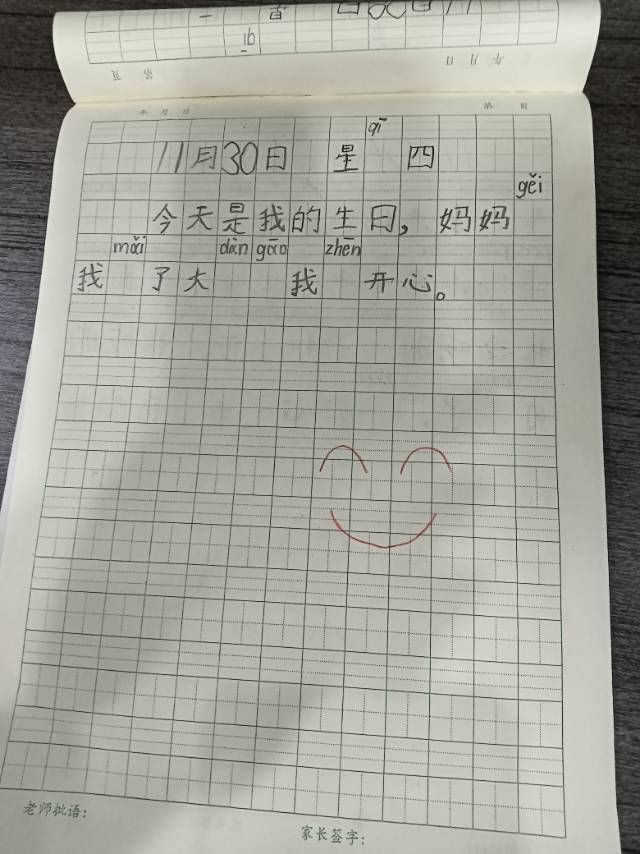 年 月 日 第 页
qī
11月30日 星 四
gěi
今天是我的生日，妈妈
mǎi dàn gāo zhēn
我 了大 我 开心。
老师批语：
家长签字：